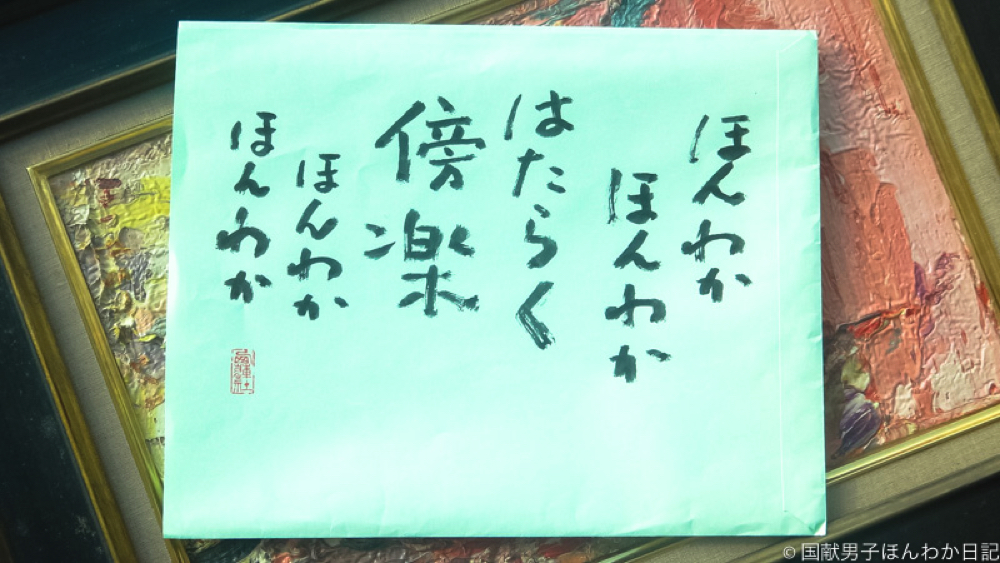 ほんわか
ほんわか
はたらく
傍楽
ほんわか
ほんわか
© 国献男子ほんわか日記